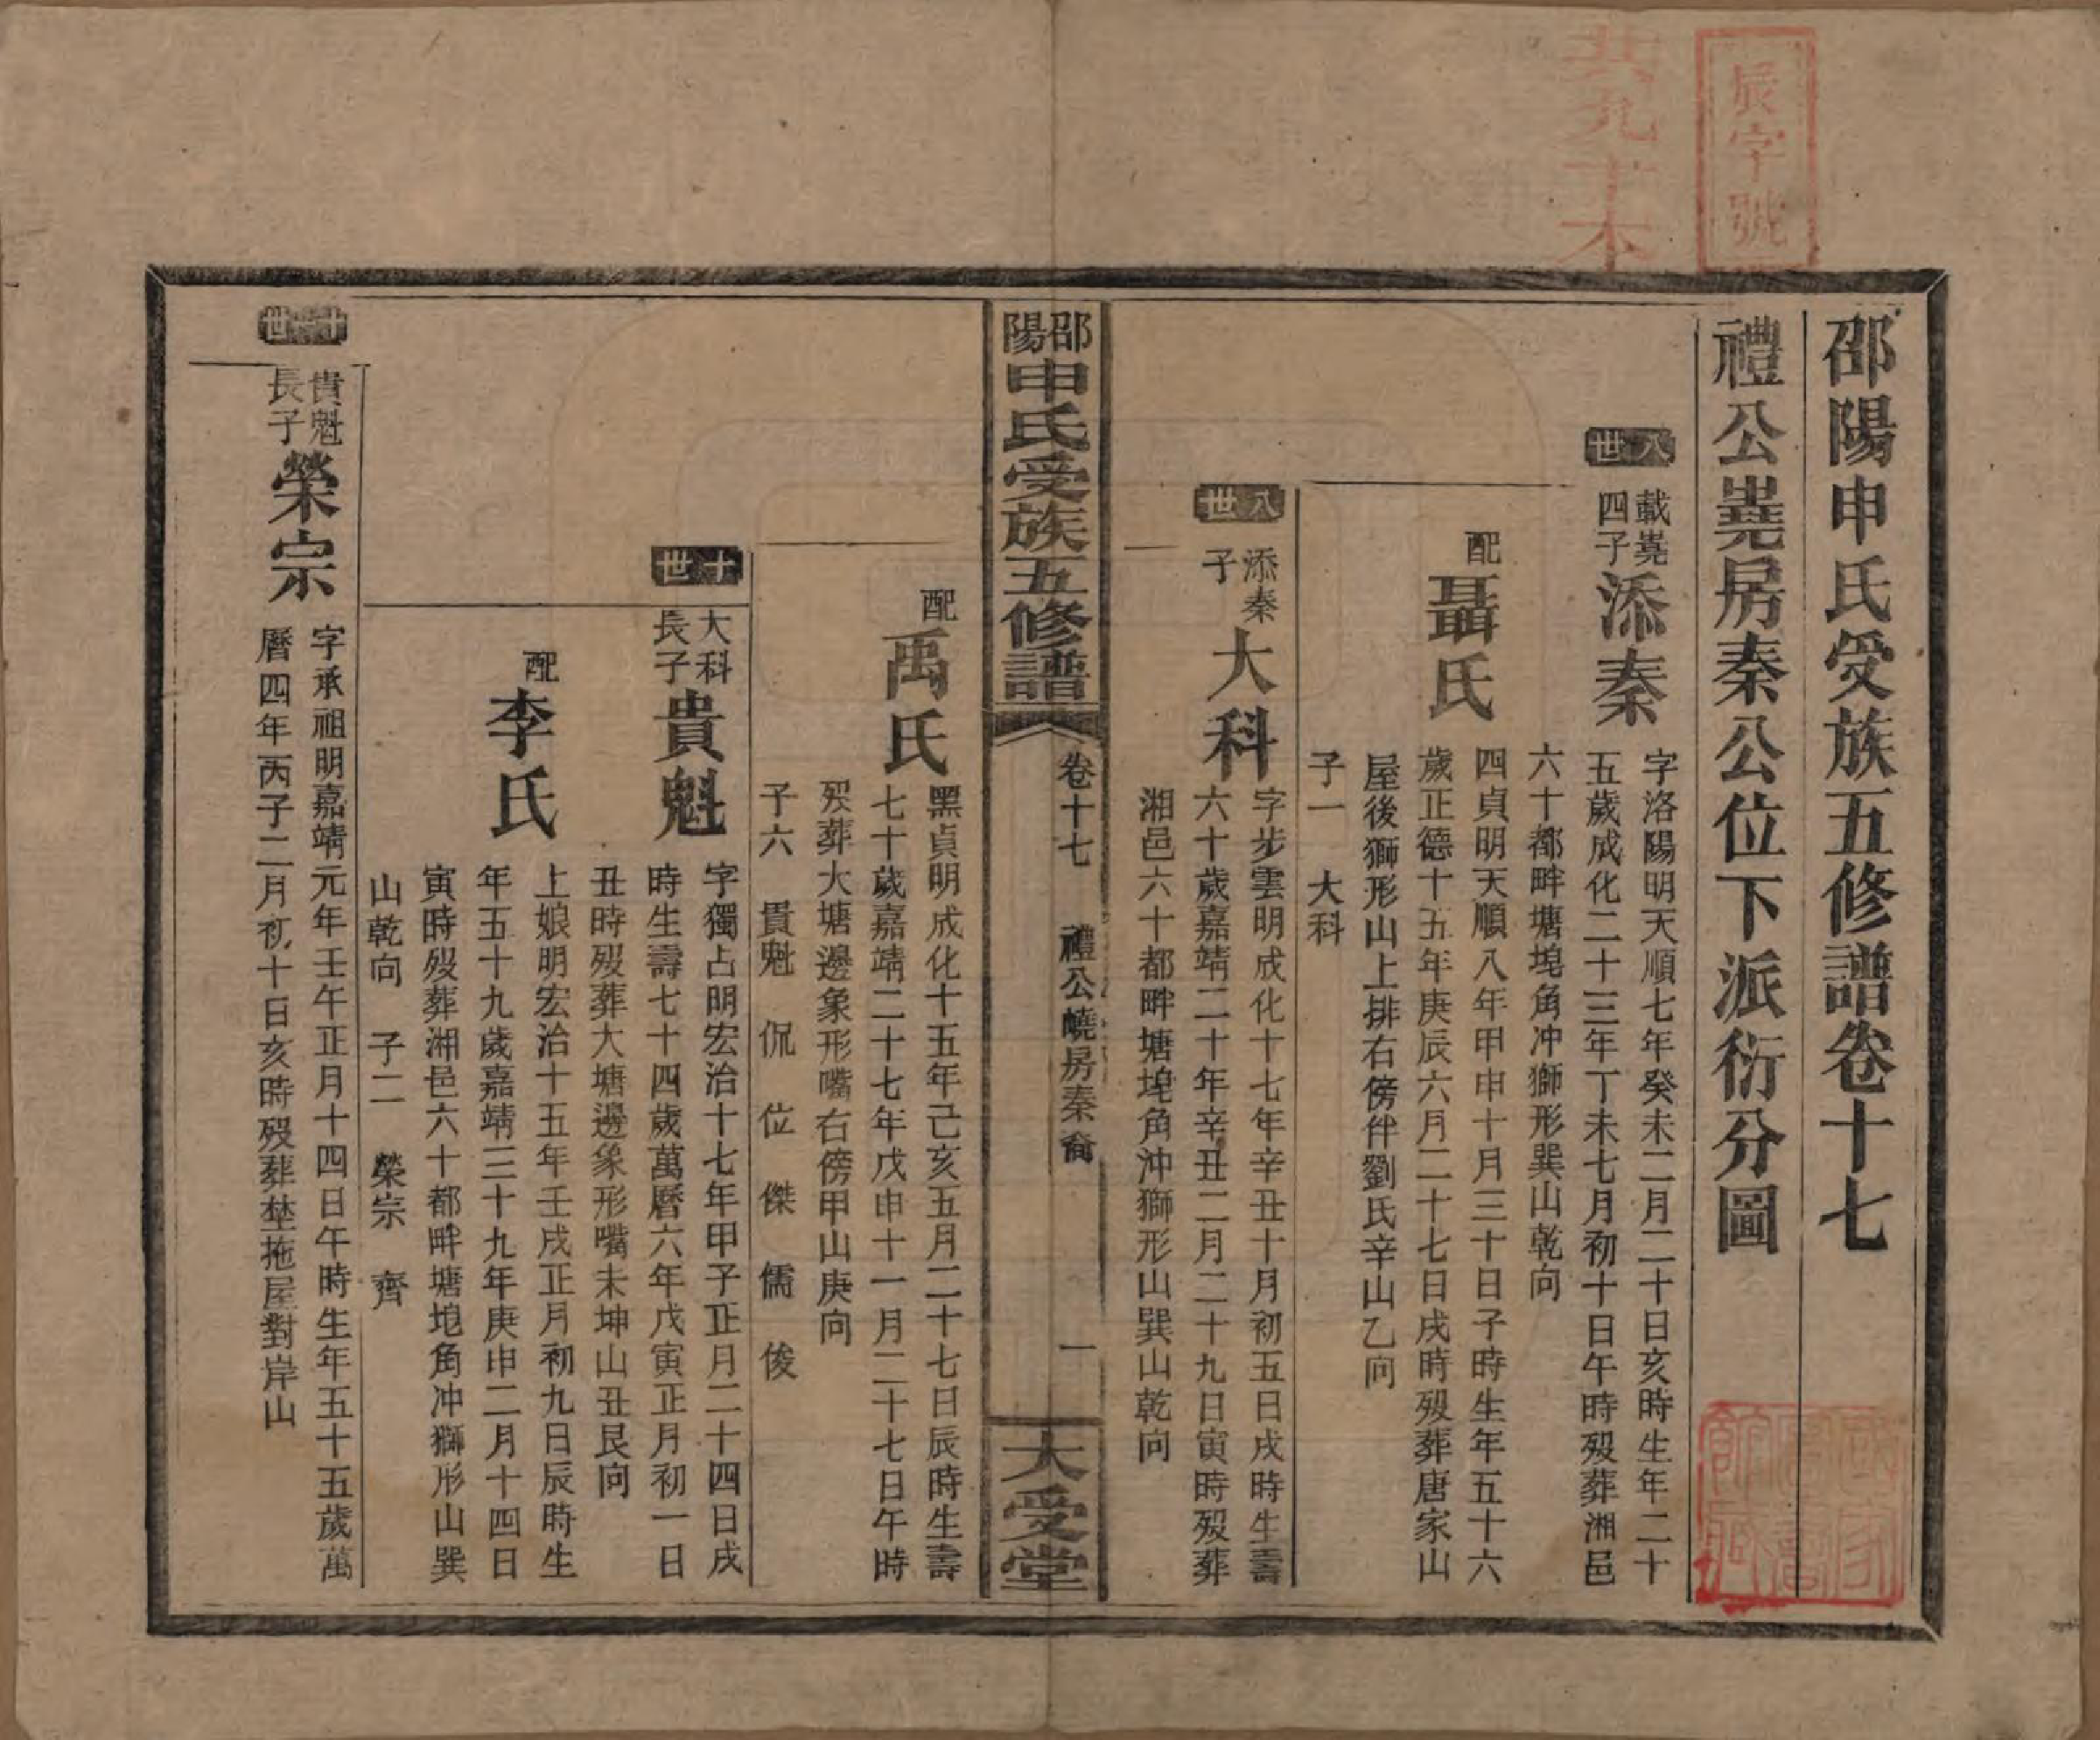 辰字號
共九十本
邵陽申氏受族五修譜卷十七
禮公嶤房秦公位下派衍分圖
八世
載嶤四子
添秦
字洛陽明天順七年癸未二月二十日亥時生年二十
五歲成化二十三年丁未七月初十日午時歿葬湘邑
六十都畔塘垉角冲獅形巽山乾向
配
聶氏
四貞明天順八年甲申十月三十日子時生年五十六
歲正德十五年庚辰六月二十七日戌時歿葬唐家山
屋後獅形山上排右傍伴劉氏辛山乙向
子一 大科
八世
添秦子
大科
字步雲明成化十七年辛丑十月初五日戌時生壽
六十歲嘉靖二十年辛丑二月二十九日寅時歿葬
湘邑六十都畔塘垉角沖獅形山巽山乾向
邵陽申氏受族五修譜
卷十七 禮公嶢房秦裔 一
大受堂
配
禹氏
黑貞明成化十五年己亥五月二十七日辰時生壽
七十歲嘉靖二十七年戊申十一月二十七日午時
歿葬大塘邊象形嘴右傍甲山庚向
子六 貴魁 侃 位 傑 儒 俊
十世
大科長子
貴魁
字獨占明宏治十七年甲子正月二十四日戌
時生壽七十四歲萬曆六年戊寅正月初一日
丑時歿葬大塘邊象形嘴未坤山丑艮向
配
李氏
上娘明宏治十五年壬戌正月初九日辰時生
年五十九歲嘉靖三十九年庚申二月十四日
寅時歿葬湘邑六十都畔塘垉角冲獅形山巽
山乾向 子二 榮宗 齊
十一世
貴魁長子
榮宗
字承祖明嘉靖元年壬午正月十四日午時生年五十五歲萬
曆四年丙子二月初十日亥時歿葬埜拖屋對岸山